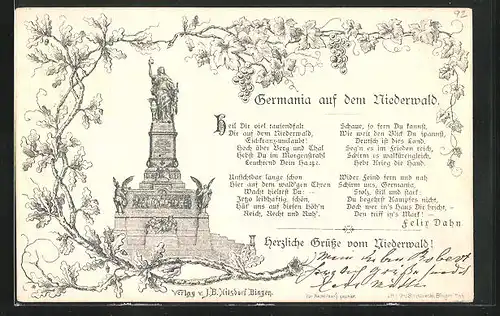 92
Germania auf dem Niederwald.
Heil Dir viel tausendfalt
Die auf dem Niederwald,
Eichkranzumlaubt!
Hoch über Berg und Thal
Hebst Du im Morgenstrahl
Leuchtend Dein Haupt.
Unsichtbar lange schon
Hier auf dem wald'gen Thron
Wacht hieltest Du: —
Jetzo leibhaftig schön,
Hüt' uns auf diesen Höh'n
Reich, Recht und Ruh'.
Schaue, so fern Du kannst,
Wie weit den Blick Du spannst,
Deutsch ist dies Land,
Segn'es im Frieden reich,
Schirm es walkürengleich,
Hebt Krieg die Hand.
Wider Feind fern und nah
Schirm uns, Germania,
Stolz, still und stark:
Du begehrst Kampfes nicht,
Doch wer in's Haus Dir bricht, —
Den triff in's Mark! —
Felix Dahn
Herzliche Grüße vom Niederwald!
Mein lieben Robert
Verlag v. J.B. Hilsdorf, Bingen.